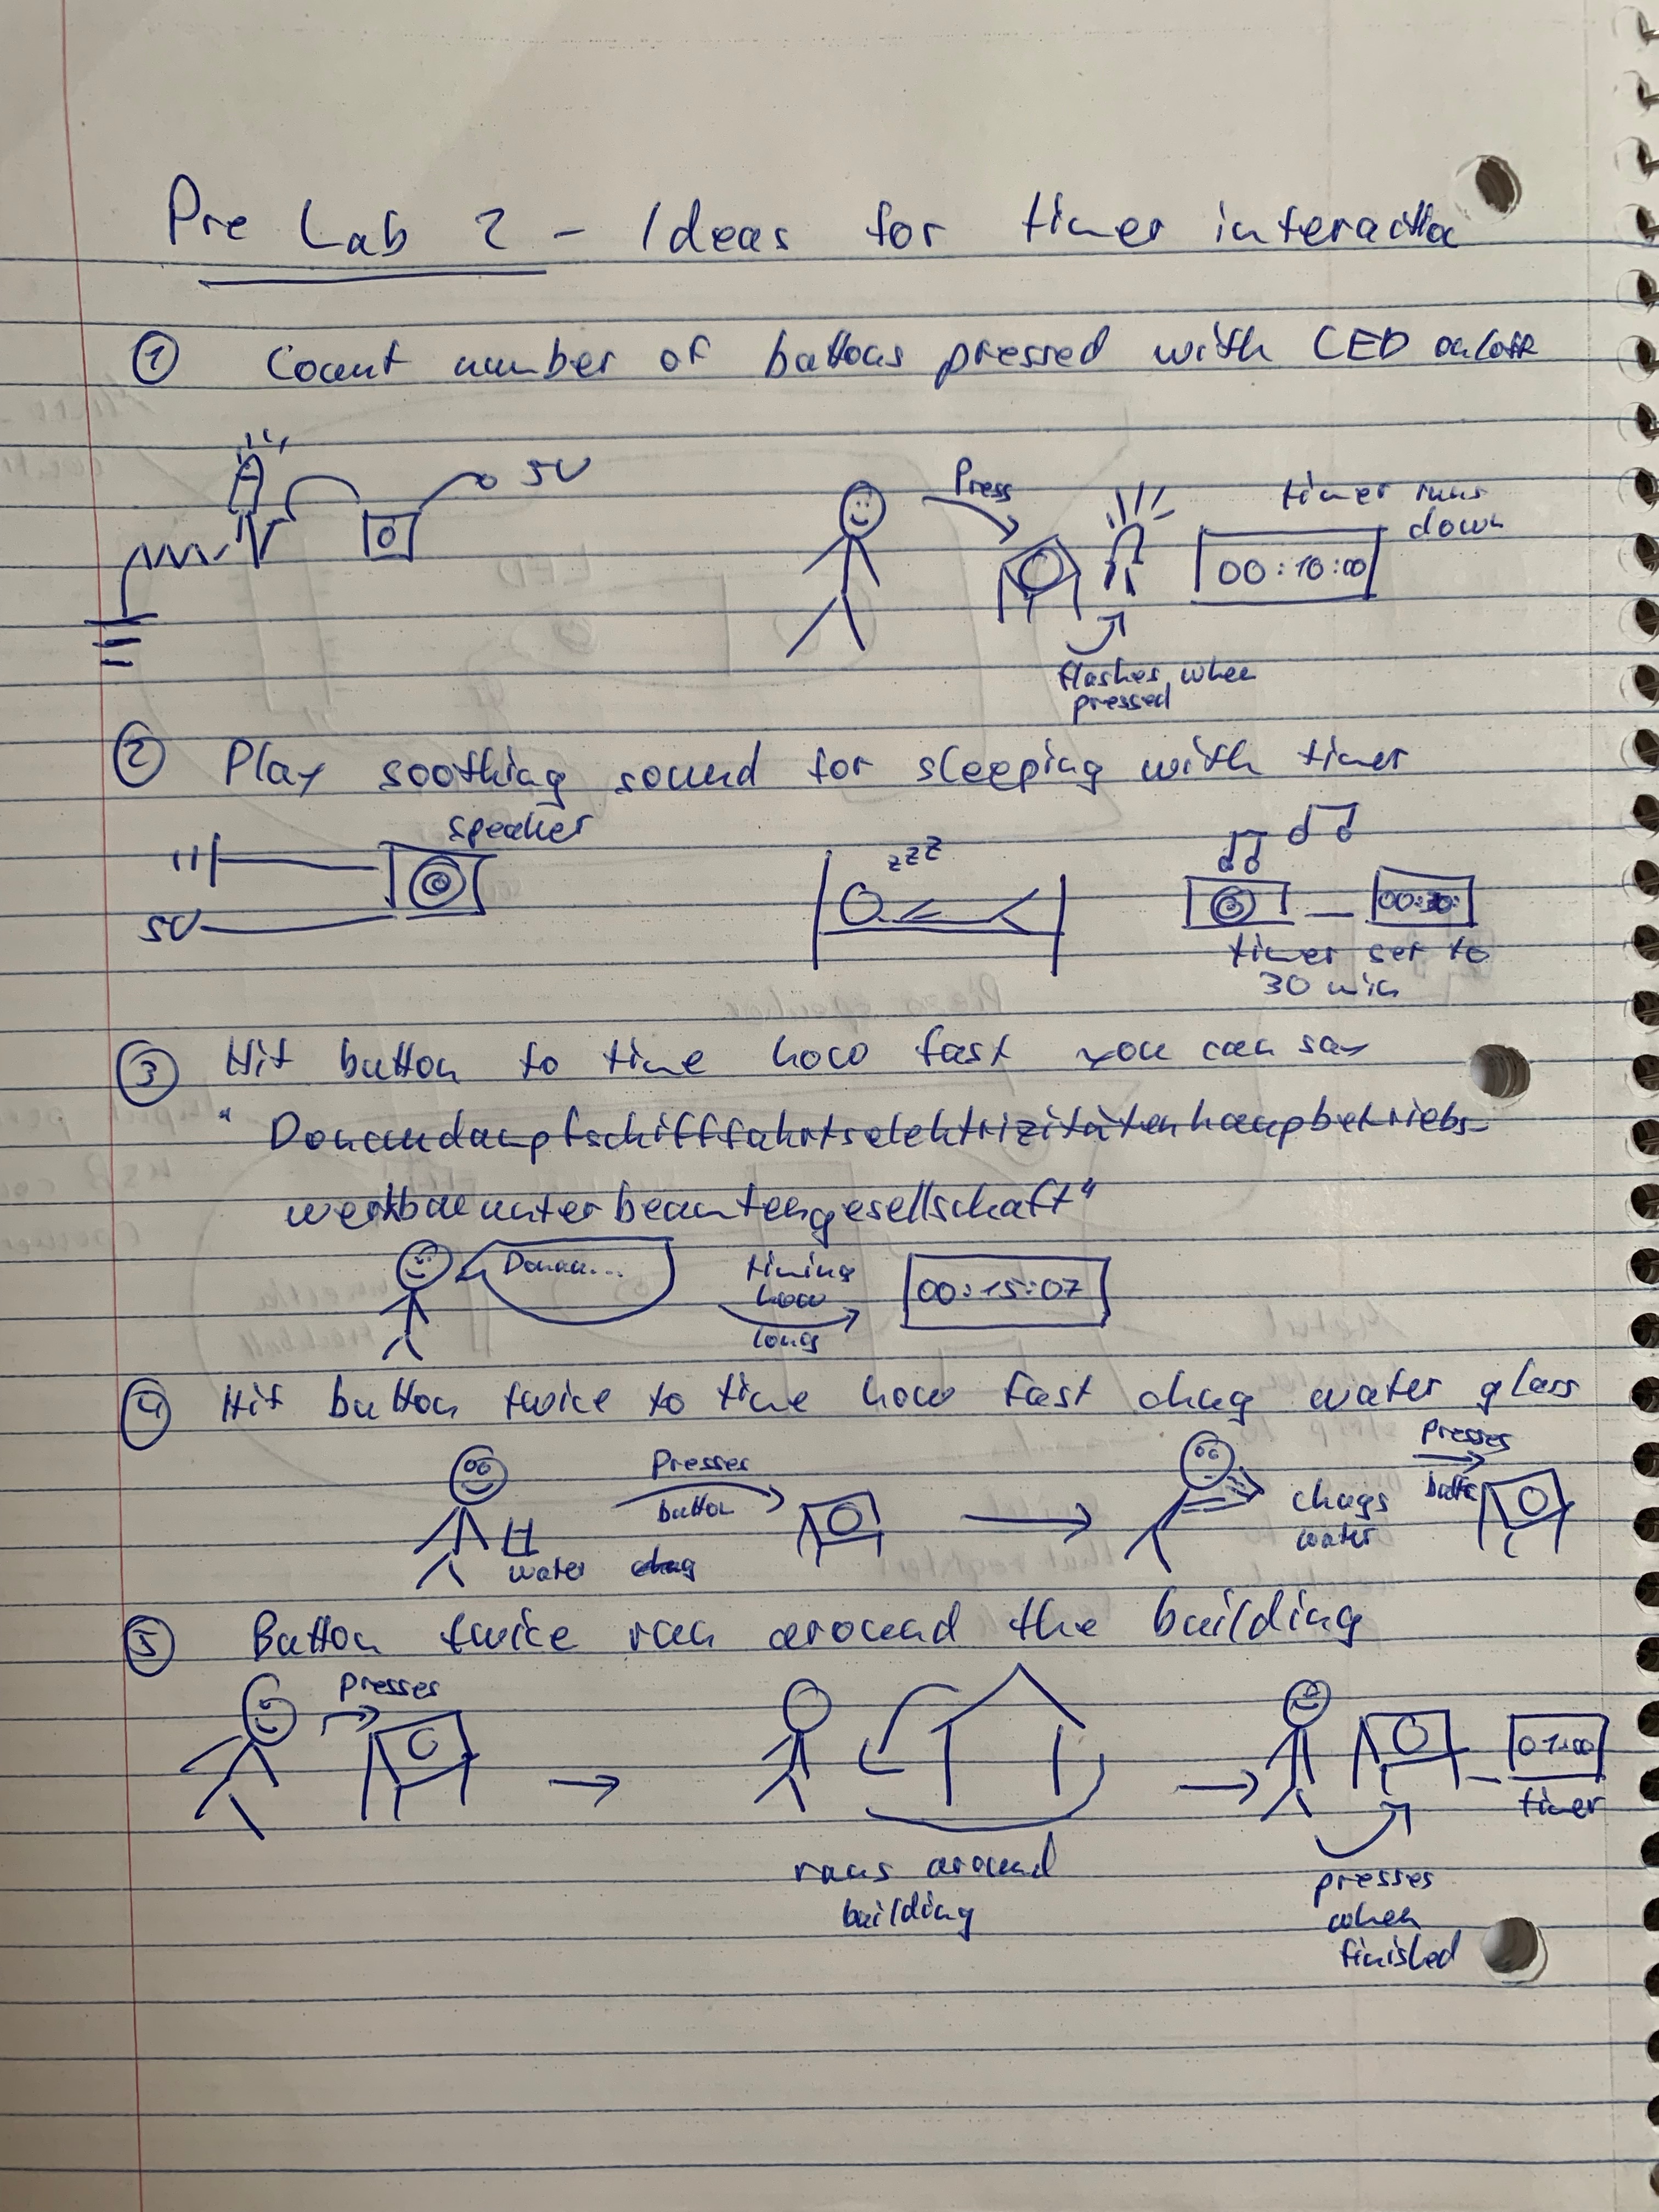 Pre Lab 2 - Ideas for timer interaction
① Count number of buttons pressed with LED on/off
5V
Press
timer runs
down
00:10:00
flashes when
pressed
② Play soothing sound for sleeping with timer
speaker
5V
zzz
00:30:
timer set to
30 min
③ Hit button to time how fast you can say
"Donaudampfschifffahrtselektrizitätenhaupbetriebs-
werkbauunterbeamtengesellschaft"
Donau...
timing
how
long
00:15:07
④ Hit button twice to time how fast chug water glass
Presses
button
water
chug
chugs
water
Presses
button
⑤ Button twice run around the building
Presses
runs around
building
01:00
timer
presses
when
finished